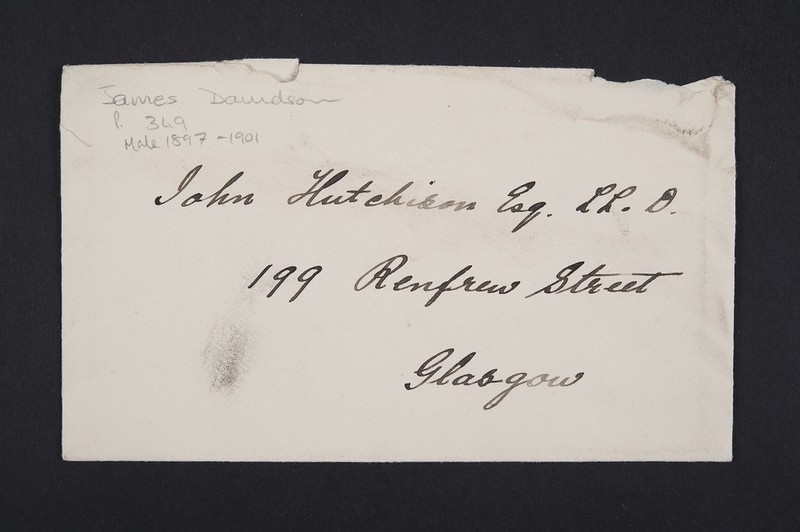 James Davidson
P. 349
Male 1897-1901
John Hutchison Esq. LL. D.
199 Renfrew Street
Glasgow